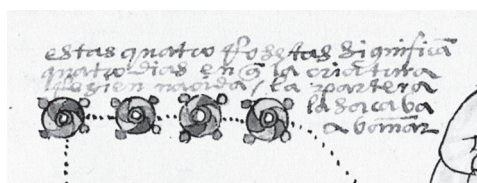 estas quatro Rosetas significā
quatro dias en q̄ la criatura
Rezien naçida / la partera
la sacaba
a bañar